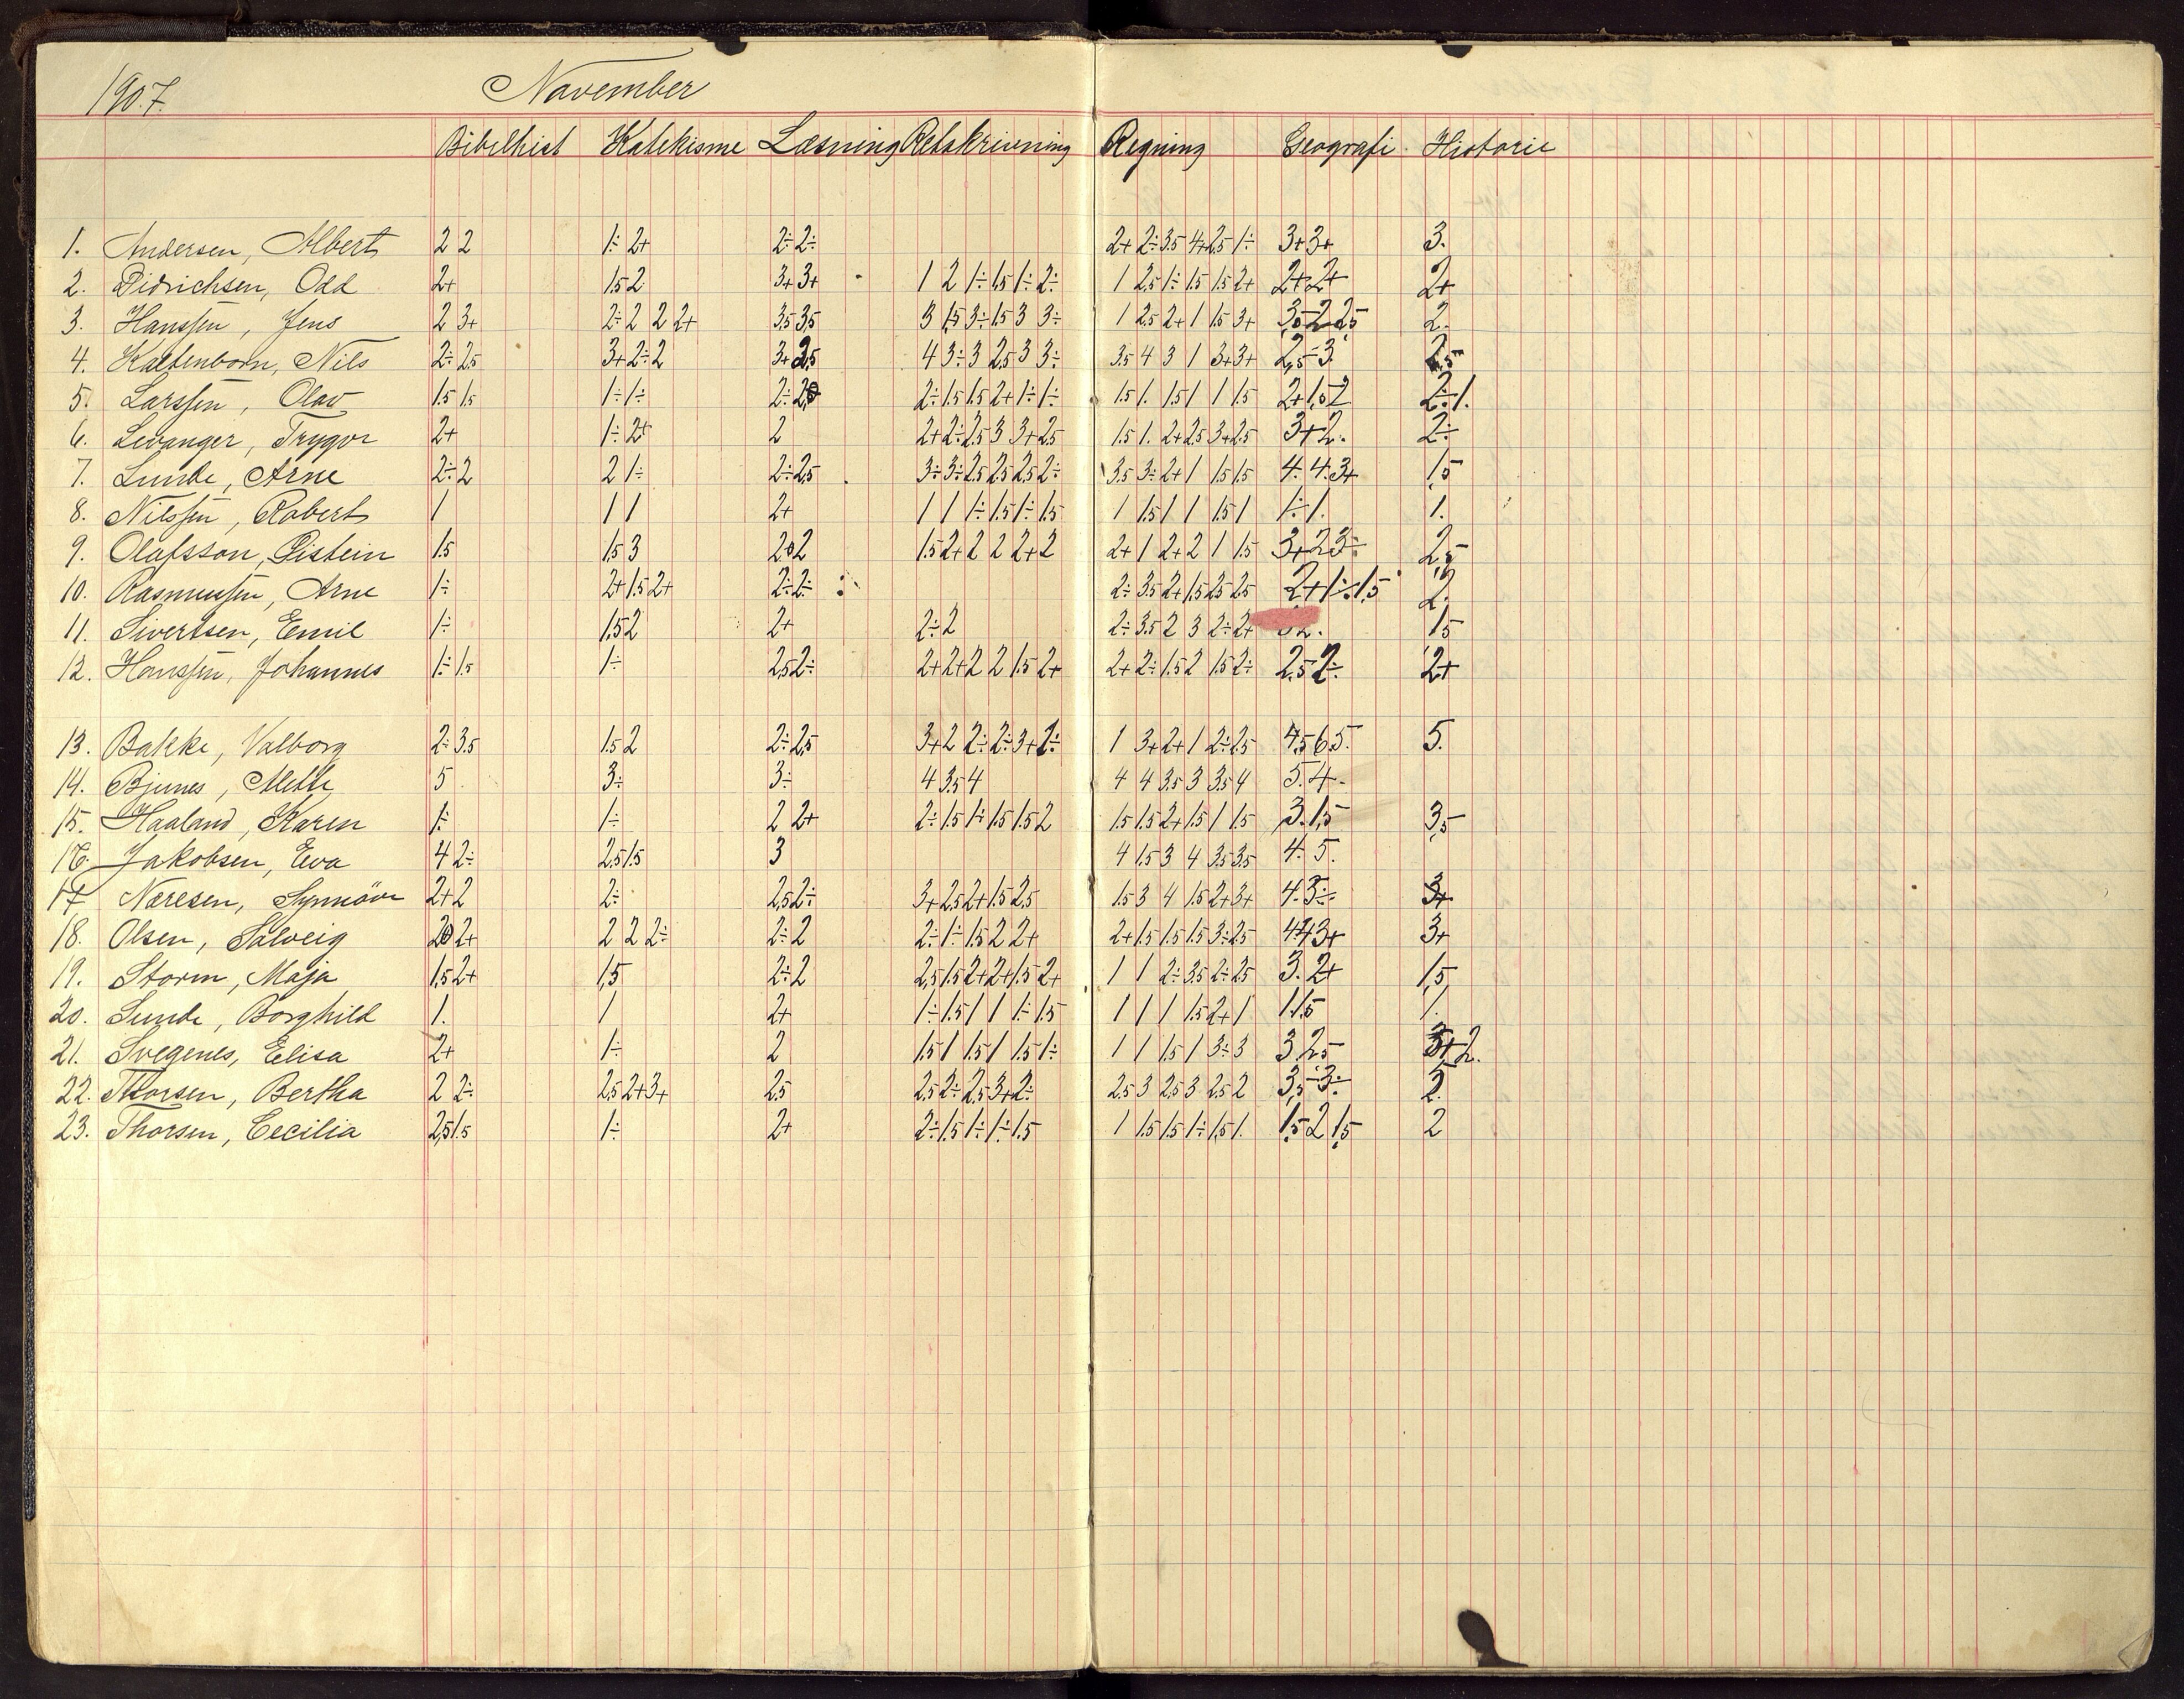 1907. November
Bibelhist Katekisme Læsning Retskrivning Regning Geografi. Historie
1. Andersen, Albert 2 2 1÷ 2+ 2÷ 2÷ 2+ 2÷ 3.5 4+ 2.5 1÷ 3+ 3+ 3.
2. Didrichsen, Odd 2+ 1.5 2 3+ 3+ 1 2 1÷ 1.5 1÷ 2÷ 1 2.5 1÷ 1.5 1.5 2+ 2+ 2+ 2+
3. Hanssen, Jens 2 3+ 2÷ 2 2 2+ 3.5 3.5 3 1.5 3÷ 1.5 3 3÷ 1 2.5 2+ 1 1.5 3+ 3,5 2 2,5 2.
4. Kaltenborn, Nils 2÷ 2.5 3+ 2÷ 2 3+ 2.5 4 3÷ 3 2.5 3 3÷ 3.5 4 3 1 3+ 3+ 2,5 3. 2,5
5. Larssen, Olav 1.5 1.5 1÷ 1÷ 2÷ 2÷ 1.5 1.5 2+ 1÷ 1÷ 1.5 1. 1.5 1 1 1.5 2+ 1,5 2 2÷ 1.
6. Levanger, Trygve 2+ 1÷ 2+ 2 2+ 2÷ 2.5 3 3+ 2.5 1.5 1. 2+ 2.5 3+ 2.5 3+ 2. 2÷
7. Lunde, Arne 2÷ 2 2 1÷ 2÷ 2.5 3÷ 3÷ 2.5 2.5 2.5 2÷ 3.5 3÷ 2+ 1 1.5 1.5 4. 4. 3+ 1,5
8. Nilssen, Robert 1 1 1 2+ 1 1 1÷ 1.5 1÷ 1.5 1 1.5 1 1 1.5 1 1÷ 1. 1.
9. Olafsson, Øistein 1.5 1.5 3 2 2 1.5 2+ 2 2 2+ 2 2+ 1 2+ 2 1 1.5 3+ 2 3÷ 2,5
10. Rasmussen, Arne 1÷ 2+ 1.5 2+ 2÷ 2÷ 2÷ 3.5 2+ 1.5 2.5 2.5 2+ 1÷ 1,5 2.
11. Sivertsen, Emil 1÷ 1.5 2 2+ 2÷ 2 2÷ 3.5 2 3 2÷ 2+ 2. 1,5
12. Hanssen, Johannes 1÷ 1.5 1÷ 2.5 2÷ 2+ 2+ 2 2 1.5 2+ 2+ 2÷ 1.5 2 1.5 2÷ 2.5 2÷ 2+
13. Bakke, Valborg 2÷ 3.5 1.5 2 2÷ 2.5 3+ 2 2÷ 2÷ 3+ 2÷ 1 3+ 2+ 1 2÷ 2.5 4.5 6 5. 5.
14. Bjunes, Mette 5 3÷ 3÷ 4 3.5 4 4 4 3.5 3 3.5 4 5. 4.
15. Haaland, Karen 1÷ 1÷ 2 2+ 2÷ 1.5 1÷ 1.5 1.5 2 1.5 1.5 2+ 1.5 1 1.5 3. 1,5 3,5
16. Jakobsen, Eva 4 2÷ 2.5 1.5 3 4 1.5 3 4 3.5 3.5 4. 5.
17 Næresen, Synnöve 2+ 2 2÷ 2.5 2÷ 3+ 2.5 2+ 1.5 2.5 1.5 3 4 1.5 2+ 3+ 4. 3÷ 3+
18. Olsen, Solveig 2 2+ 2 2 2÷ 2÷ 2 2÷ 1÷ 1.5 2 2+ 2+ 1.5 1.5 1.5 3÷ 2.5 4 4 3+ 3+
19. Storm, Maja 1.5 2+ 1,5 2÷ 2 2,5 1.5 2+ 2+ 1.5 2+ 1 1 2÷ 3.5 2÷ 2.5 3. 2+ 1,5
20. Sunde, Borghild 1. 1 2+ 1÷ 1.5 1 1 1÷ 1.5 1 1 1 1.5 2+ 1 1. 1.5 1.
21. Svegenes, Elisa 2+ 1÷ 2 1.5 1 1.5 1 1.5 1÷ 1 1 1.5 1 3÷ 3 3. 2,5 3+ 2.
22. Thorsen, Bertha 2 2÷ 2.5 2+ 3+ 2.5 2.5 2÷ 2.5 3+ 2÷ 2.5 3 2.5 3 2.5 2 3,5 3÷ 2.
23. Thorsen, Cecilia 2,5 1.5 1÷ 2+ 2÷ 1.5 1÷ 1÷ 1.5 1 1.5 1.5 1÷ 1,5 1. 1,5 2 1,5 2